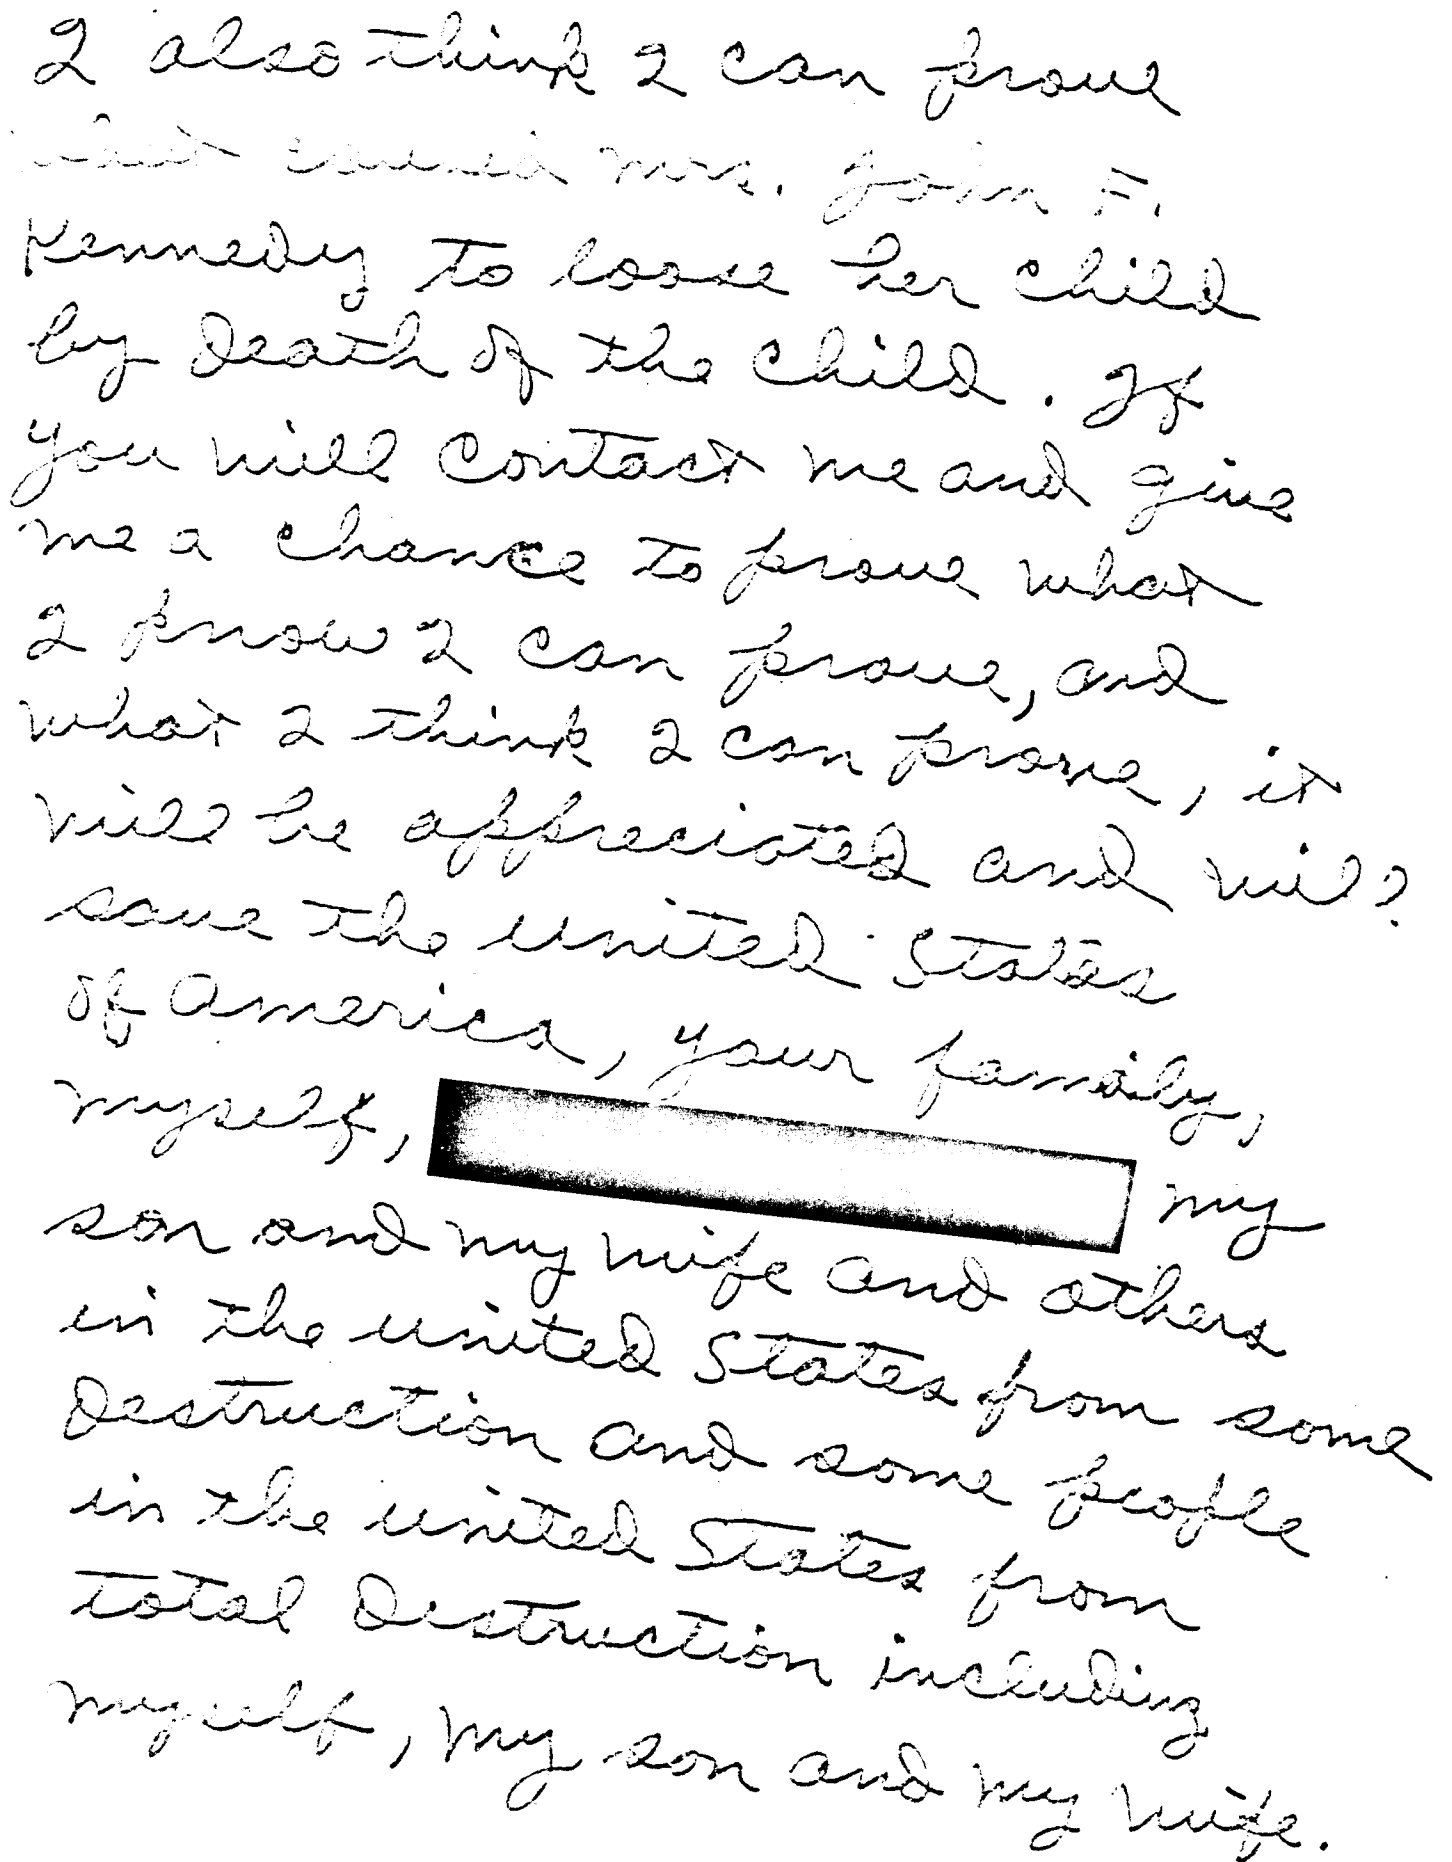 I also think I can prove
what caused Mrs. John F.
Kennedy to loose her child
by Death of the child. If
you will contact me and give
me a chance to prove what
I know I can prove, and
what I think I can prove, it
will be appreciated and will
save the united States
of America, your family,
myself, my
son and my wife and others
in the united States from some
Destruction and some people
in the united States from
total Destruction including
myself, my son and my wife.